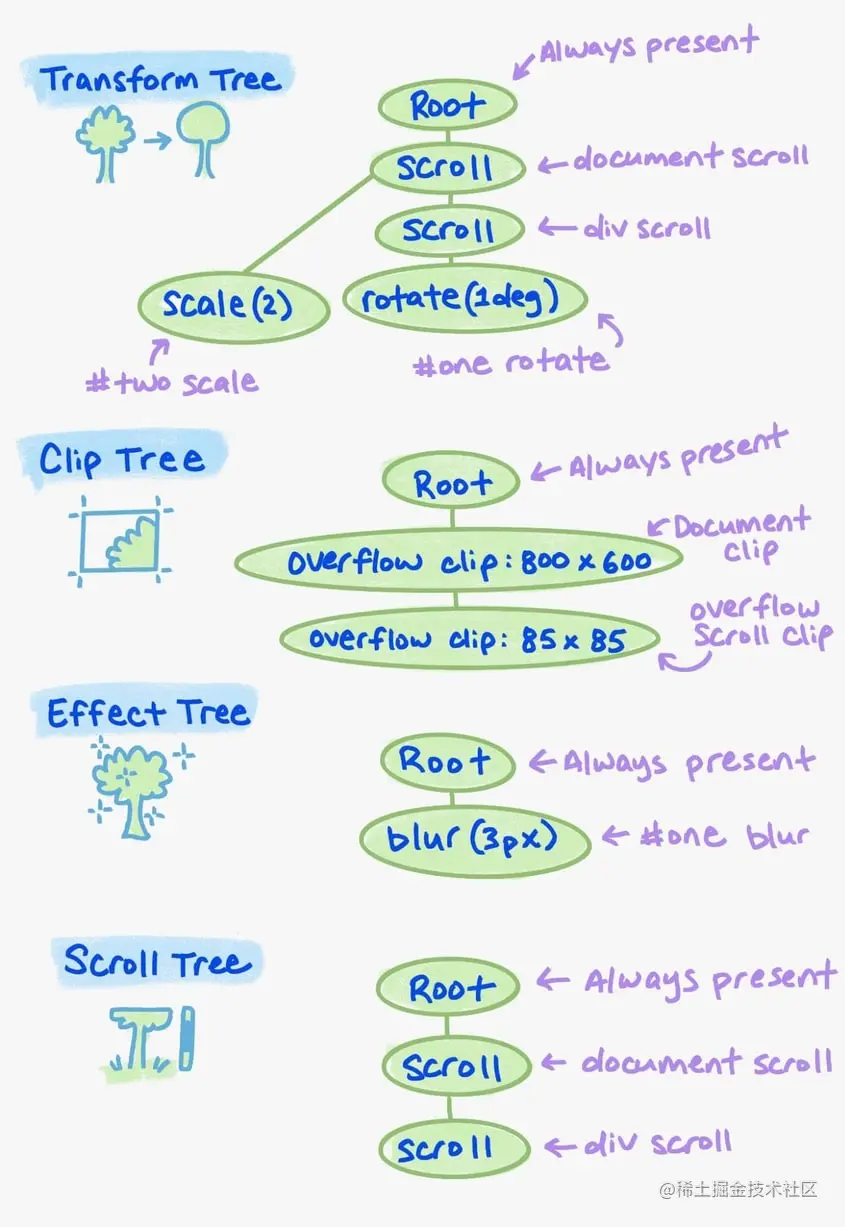 Always present
Transform Tree
Root
scroll
document scroll
scroll
div scroll
scale(2)
rotate(1deg)
#one rotate
#two scale
Clip Tree
Always present
Root
Document
clip
overflow clip: 800 x 600
overflow
scroll clip
overflow clip: 85 x 85
Effect Tree
Root
Always present
blur (3px)
#one blur
Scroll Tree
Root
Always present
scroll
document scroll
scroll
div scroll
@稀土掘金技术社区